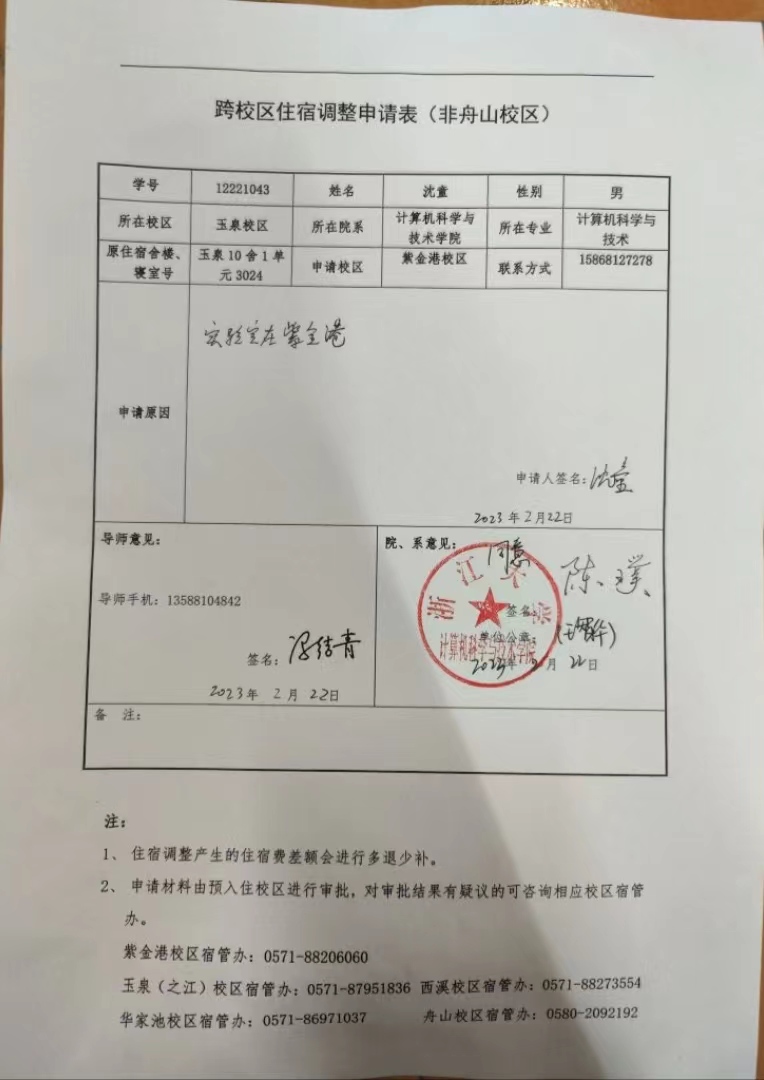 跨校区住宿调整申请表（非舟山校区）
学号 12221043 姓名 沈童 性别 男
所在校区 玉泉校区 所在院系 计算机科学与技术学院 所在专业 计算机科学与技术
原住宿舍楼、寝室号 玉泉10舍1单元3024 申请校区 紫金港校区 联系方式 15868127278
申请原因
实验室在紫金港
申请人签名：沈童
2023年2月22日
导师意见：
导师手机：13588104842
签名：
2023年2月22日
院、系意见：同意
浙江大学
计算机科学与技术学院
签名：陈璞
单位公章：
2023年2月22日
备 注：
注：
1、 住宿调整产生的住宿费差额会进行多退少补。
2、 申请材料由预入住校区进行审批，对审批结果有疑议的可咨询相应校区宿管
办。
紫金港校区宿管办：0571-88206060
玉泉（之江）校区宿管办：0571-87951836 西溪校区宿管办：0571-88273554
华家池校区宿管办：0571-86971037 舟山校区宿管办：0580-2092192